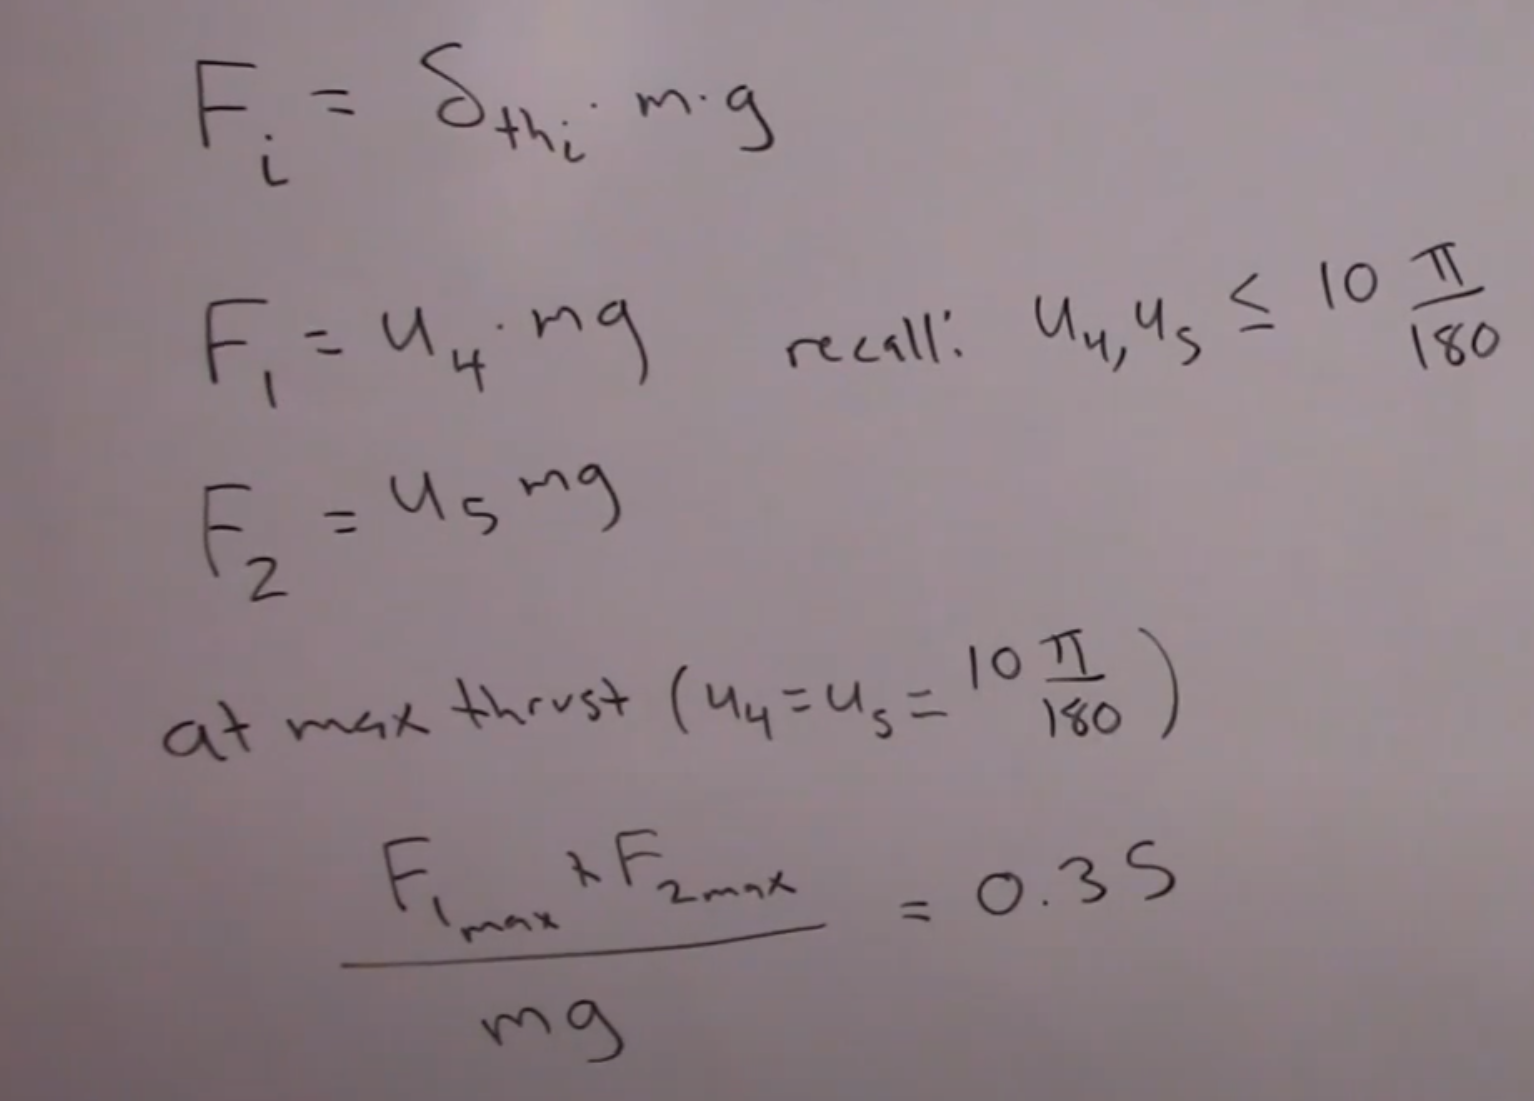 F_i = δ_th_i · m · g
F_1 = u_4 · mg recall: u_4, u_5 ≤ 10 π/180
F_2 = u_5 mg
at max thrust (u_4 = u_5 = 10 π/180)
(F_1max + F_2max)/mg = 0.35